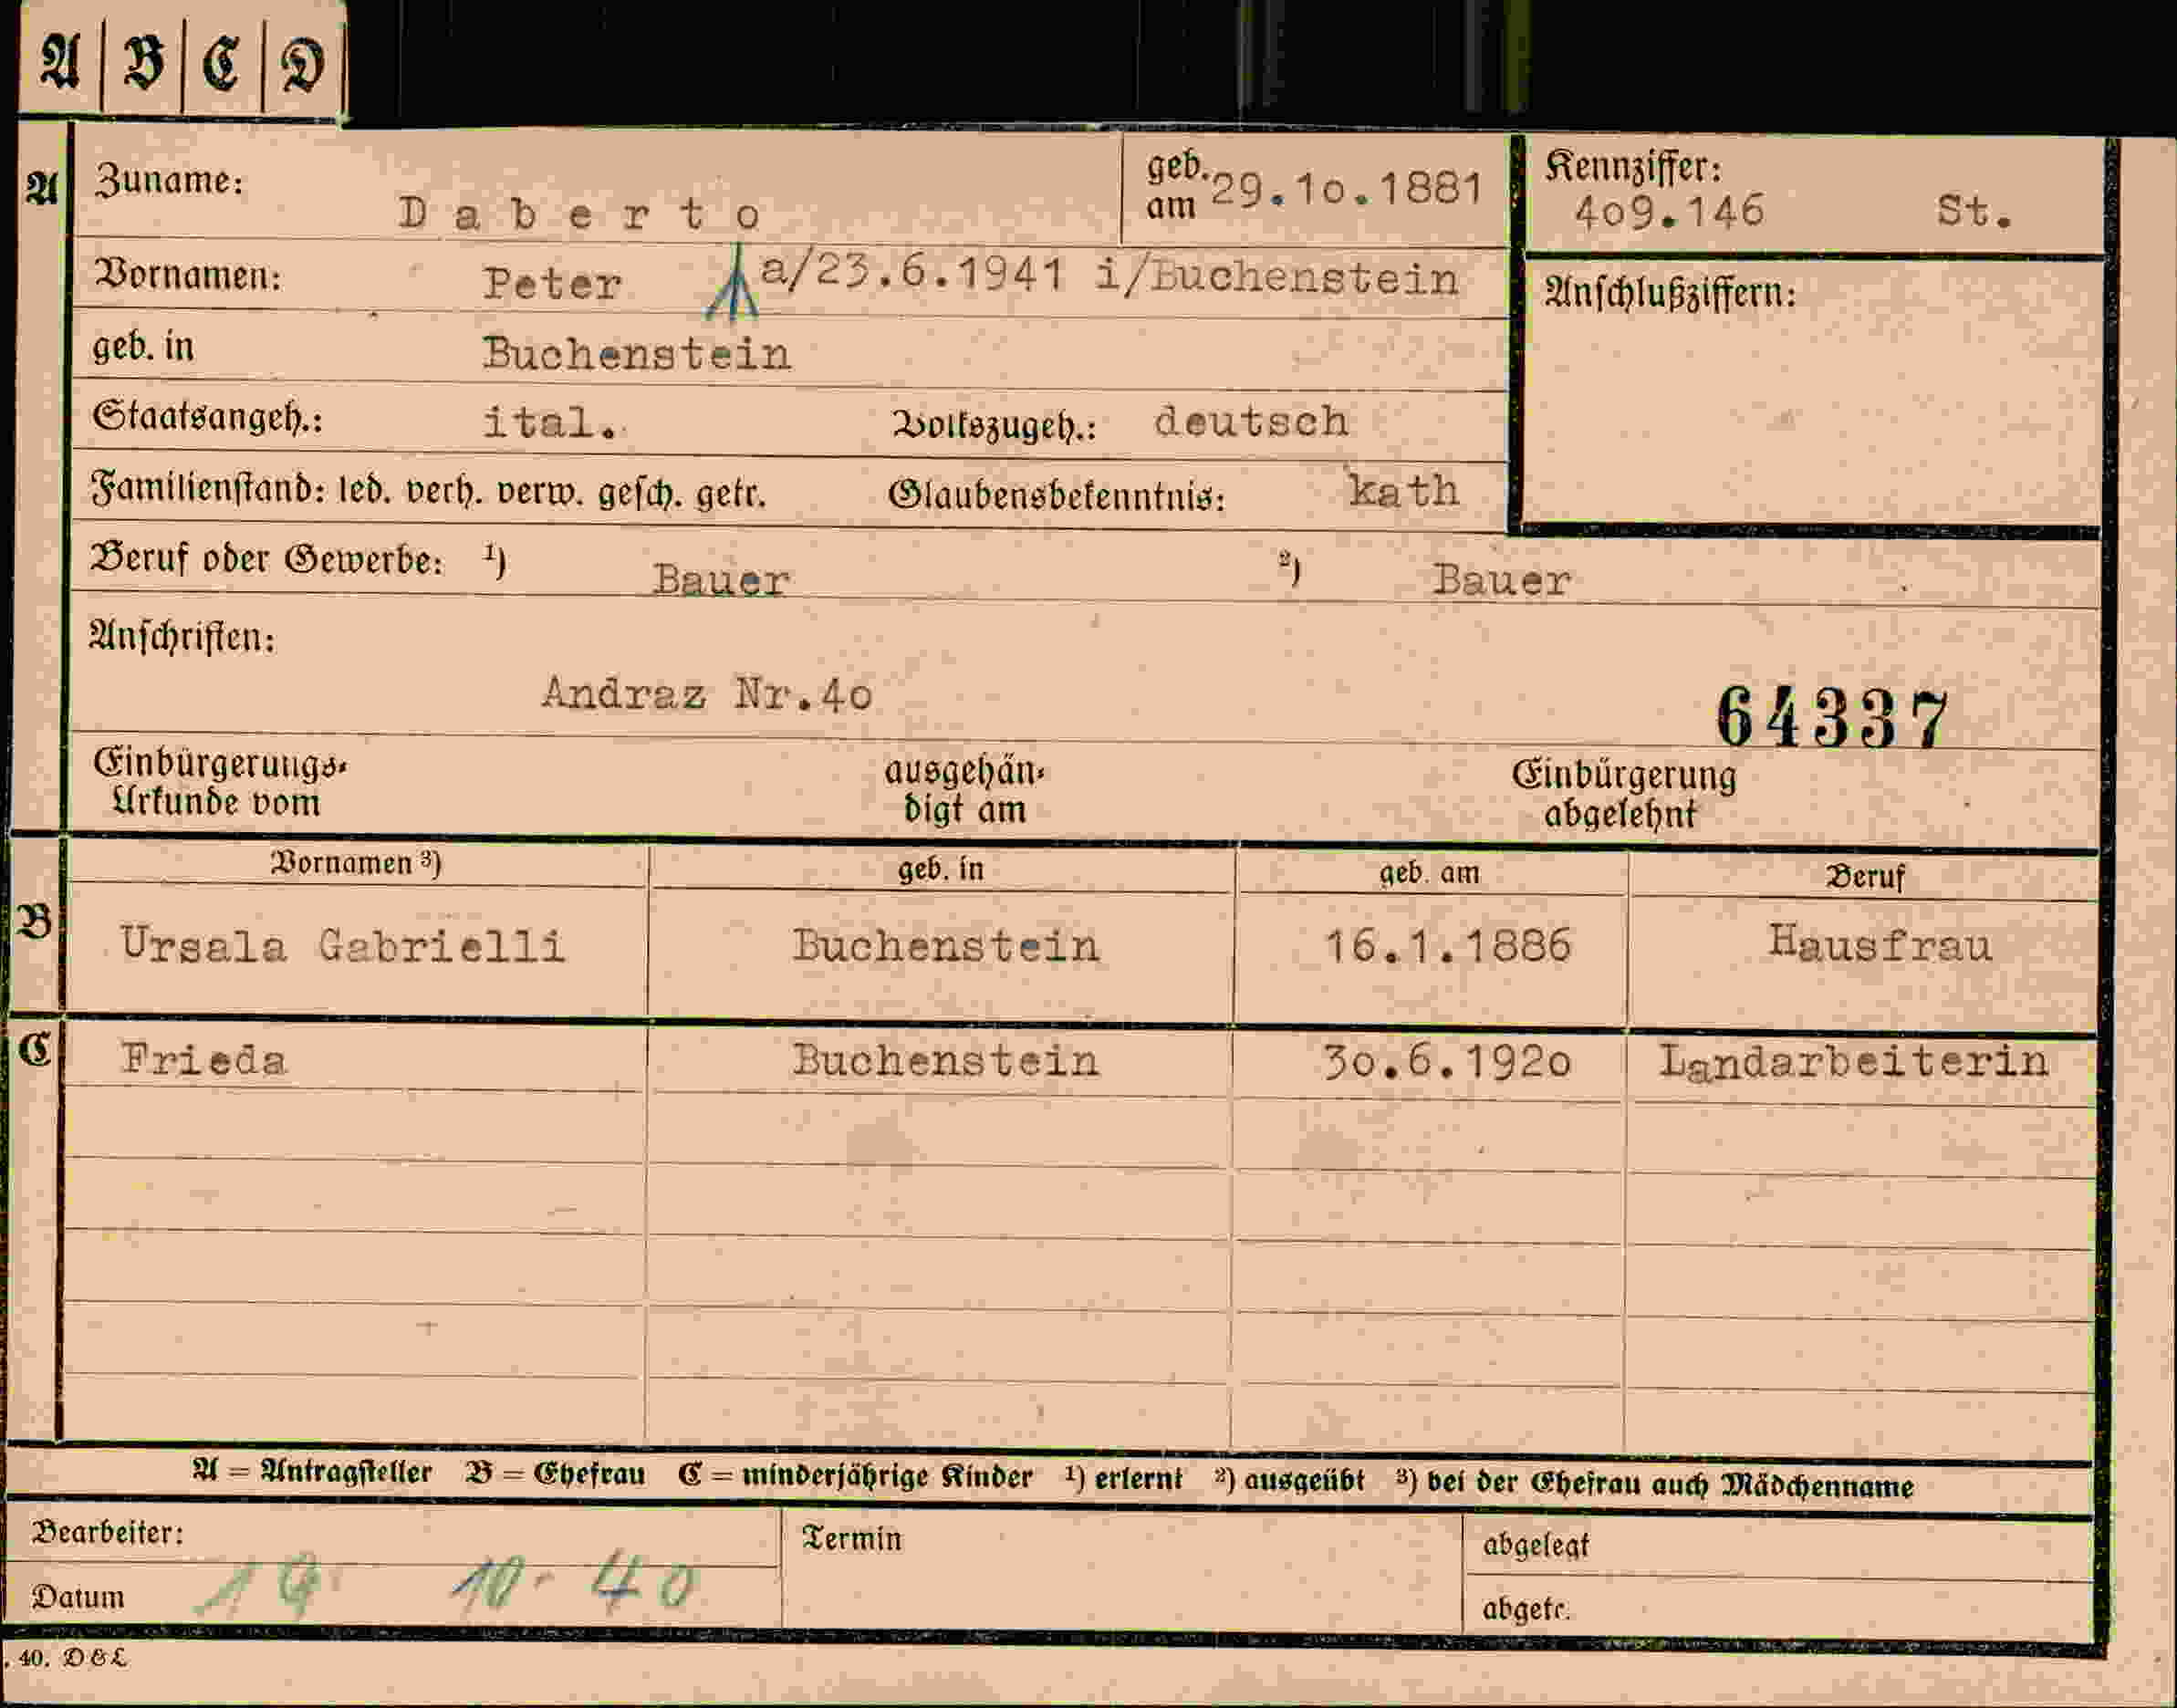 A B C D
A
Zuname: Daberto
geb. am 29.10.1881
Kennziffer:
409.146 St.
Vornamen: Peter a/23.6.1941 i/Buchenstein
Anschlußziffern:
geb. in Buchenstein
Staatsangeh.: ital. Volkszugeh.: deutsch
Familienstand: led. verh. verw. gesch. getr. Glaubensbekenntnis: kath
Beruf oder Gewerbe: 1) Bauer 2) Bauer
Anschriften:
Andraz Nr.40
64337
Einbürgerungs- ausgehän- Einbürgerung
Urkunde vom digt am abgelehnt
Vornamen 3) geb. in geb. am Beruf
B Ursala Gabrielli Buchenstein 16.1.1886 Hausfrau
C Frieda Buchenstein 30.6.1920 Landarbeiterin
A = Antragsteller B = Ehefrau C = minderjährige Kinder 1) erlernt 2) ausgeübt 3) bei der Ehefrau auch Mädchenname
Bearbeiter: Termin abgelegt
Datum 19. 10. 40 abgetr.
. 40. D & L